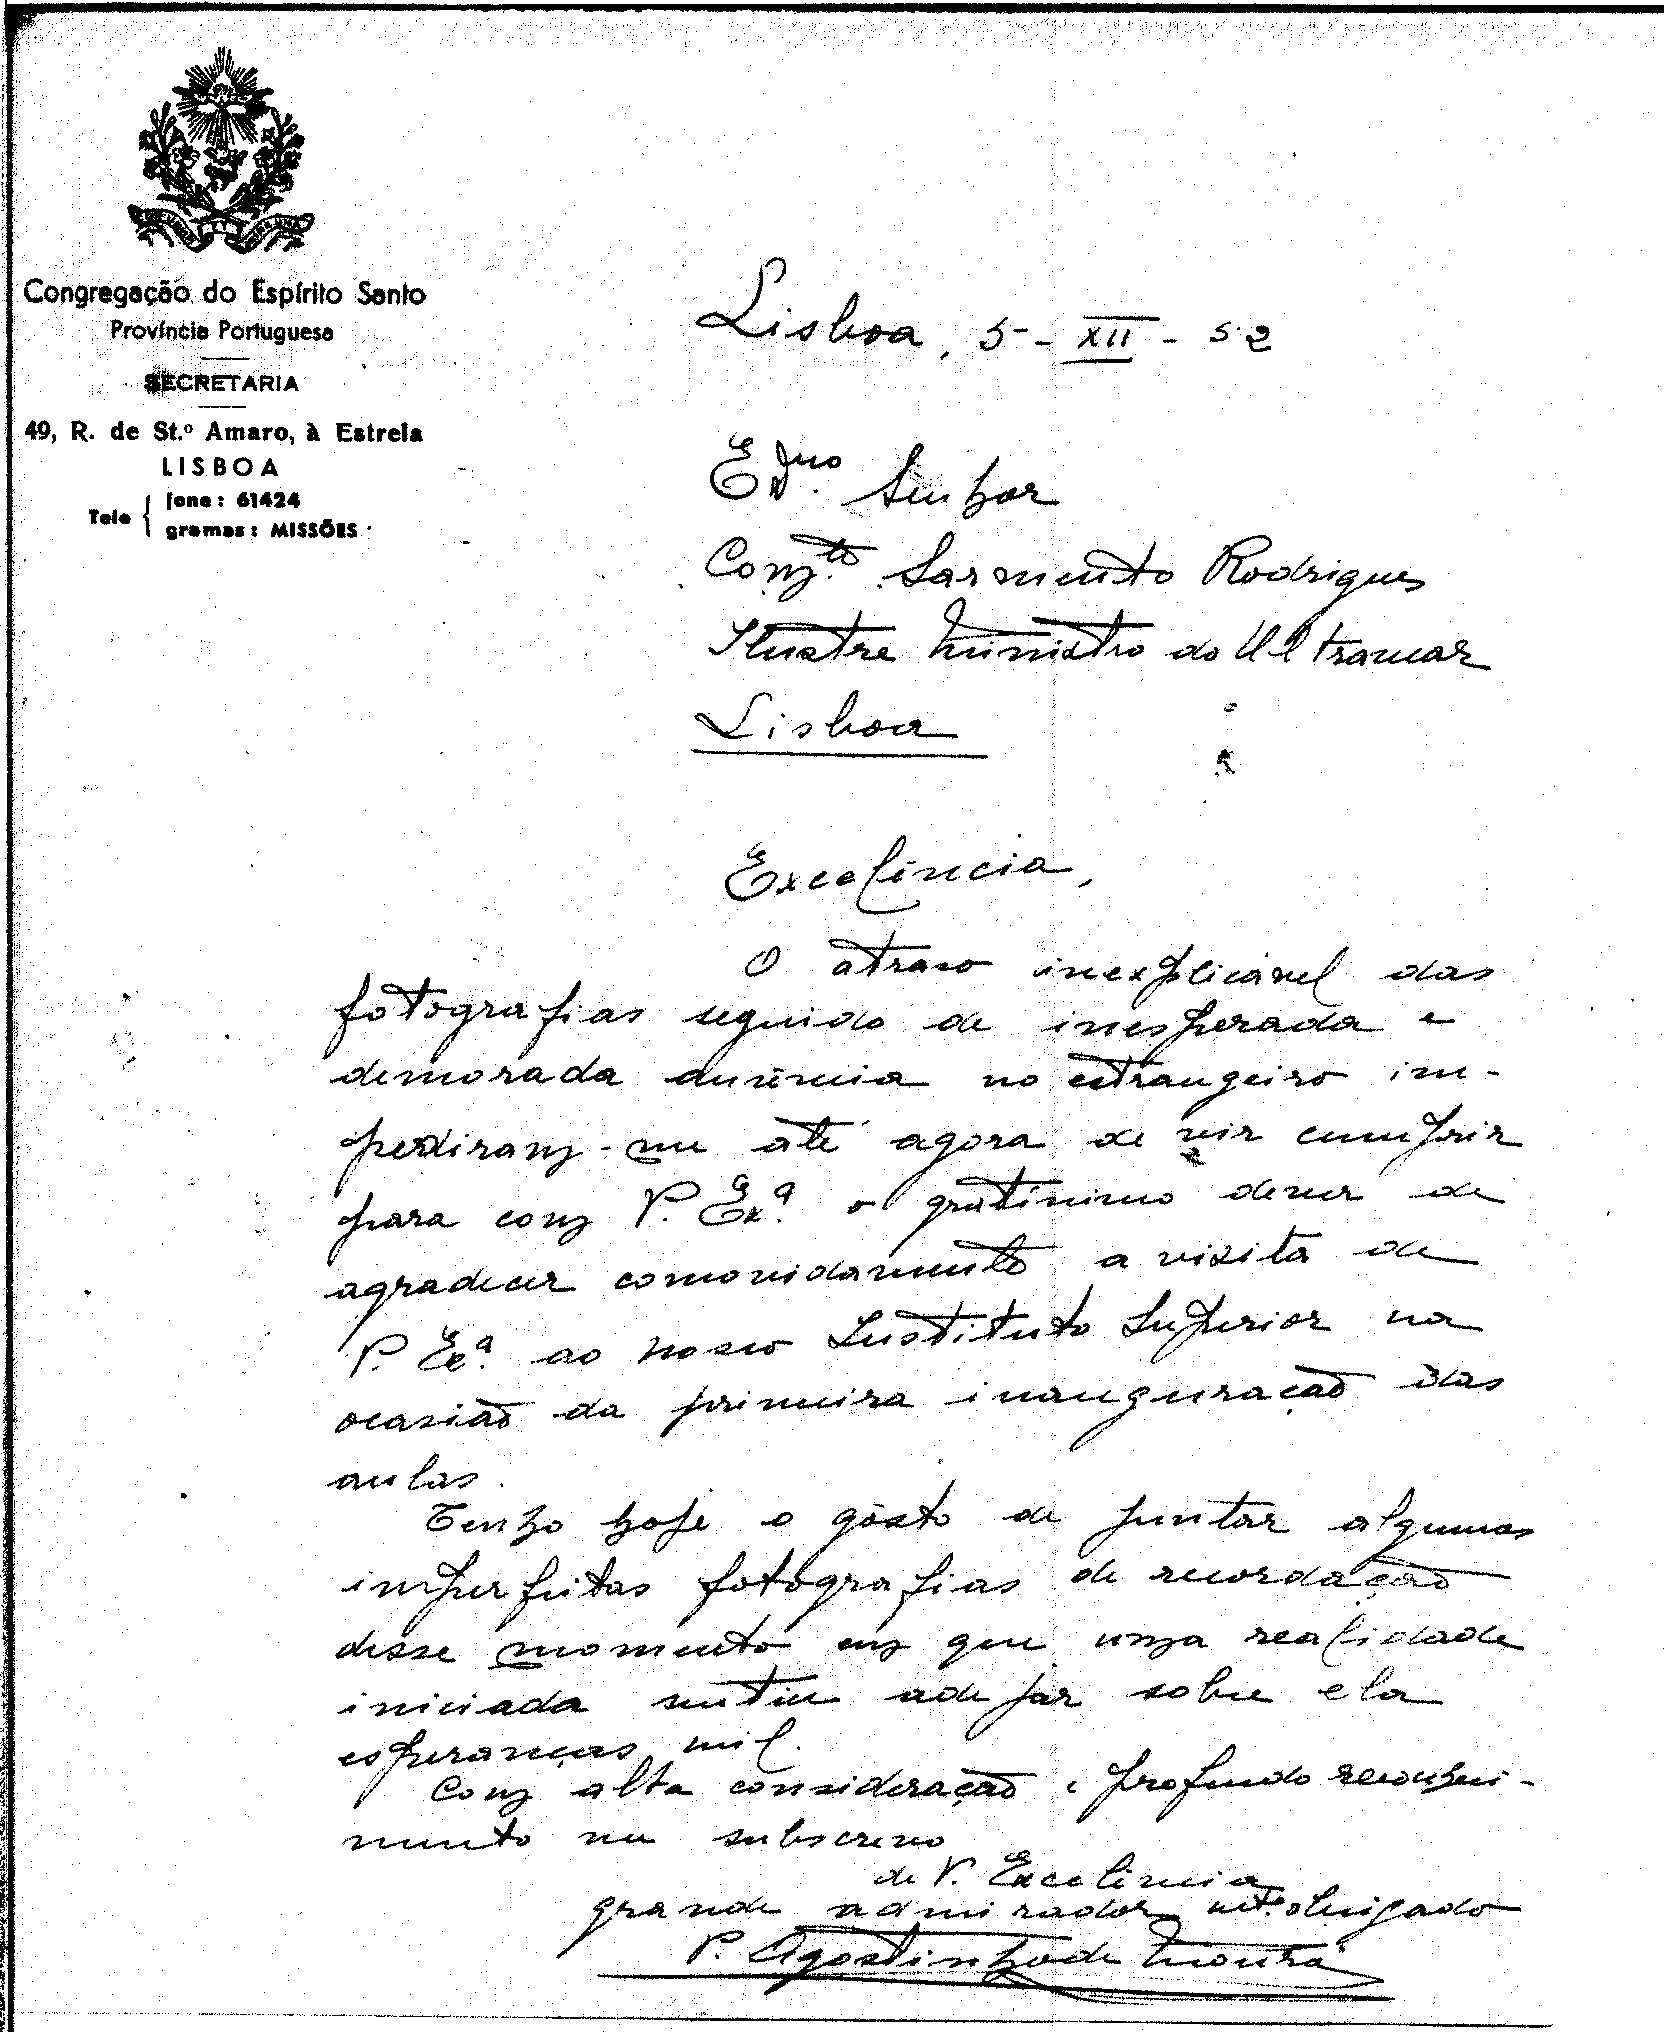 Congregação do Espírito Santo
Província Portuguesa
SECRETARIA
49, R. de St.º Amaro, à Estrela
LISBOA
Tele { fone: 61424
gramas: MISSÕES
Lisboa, 5 - XII - 52
Exmo. Senhor
Comte. Sarmento Rodrigues
Ilustre Ministro do Ultramar
Lisboa
Excelência,
O atraso inexplicável das
fotografias seguido de inesperada e
demorada ausência no estrangeiro im-
pediram-me até agora de vir cumprir
para com V. Exª. o gratíssimo dever de
agradecer comovidamente a visita de
V. Exª. ao nosso Instituto Superior na
ocasião da primeira inauguração das
aulas.
Tenho hoje o gôsto de juntar algumas
imperfeitas fotografias de recordação
desse momento em que uma realidade
iniciada sentiu adejar sobre ela
esperanças mil.
Com alta consideração e profundo reconheci-
mento me subscrevo
de V. Excelência
grande admirador mt.º obrigado
P. Agostinho de Moura